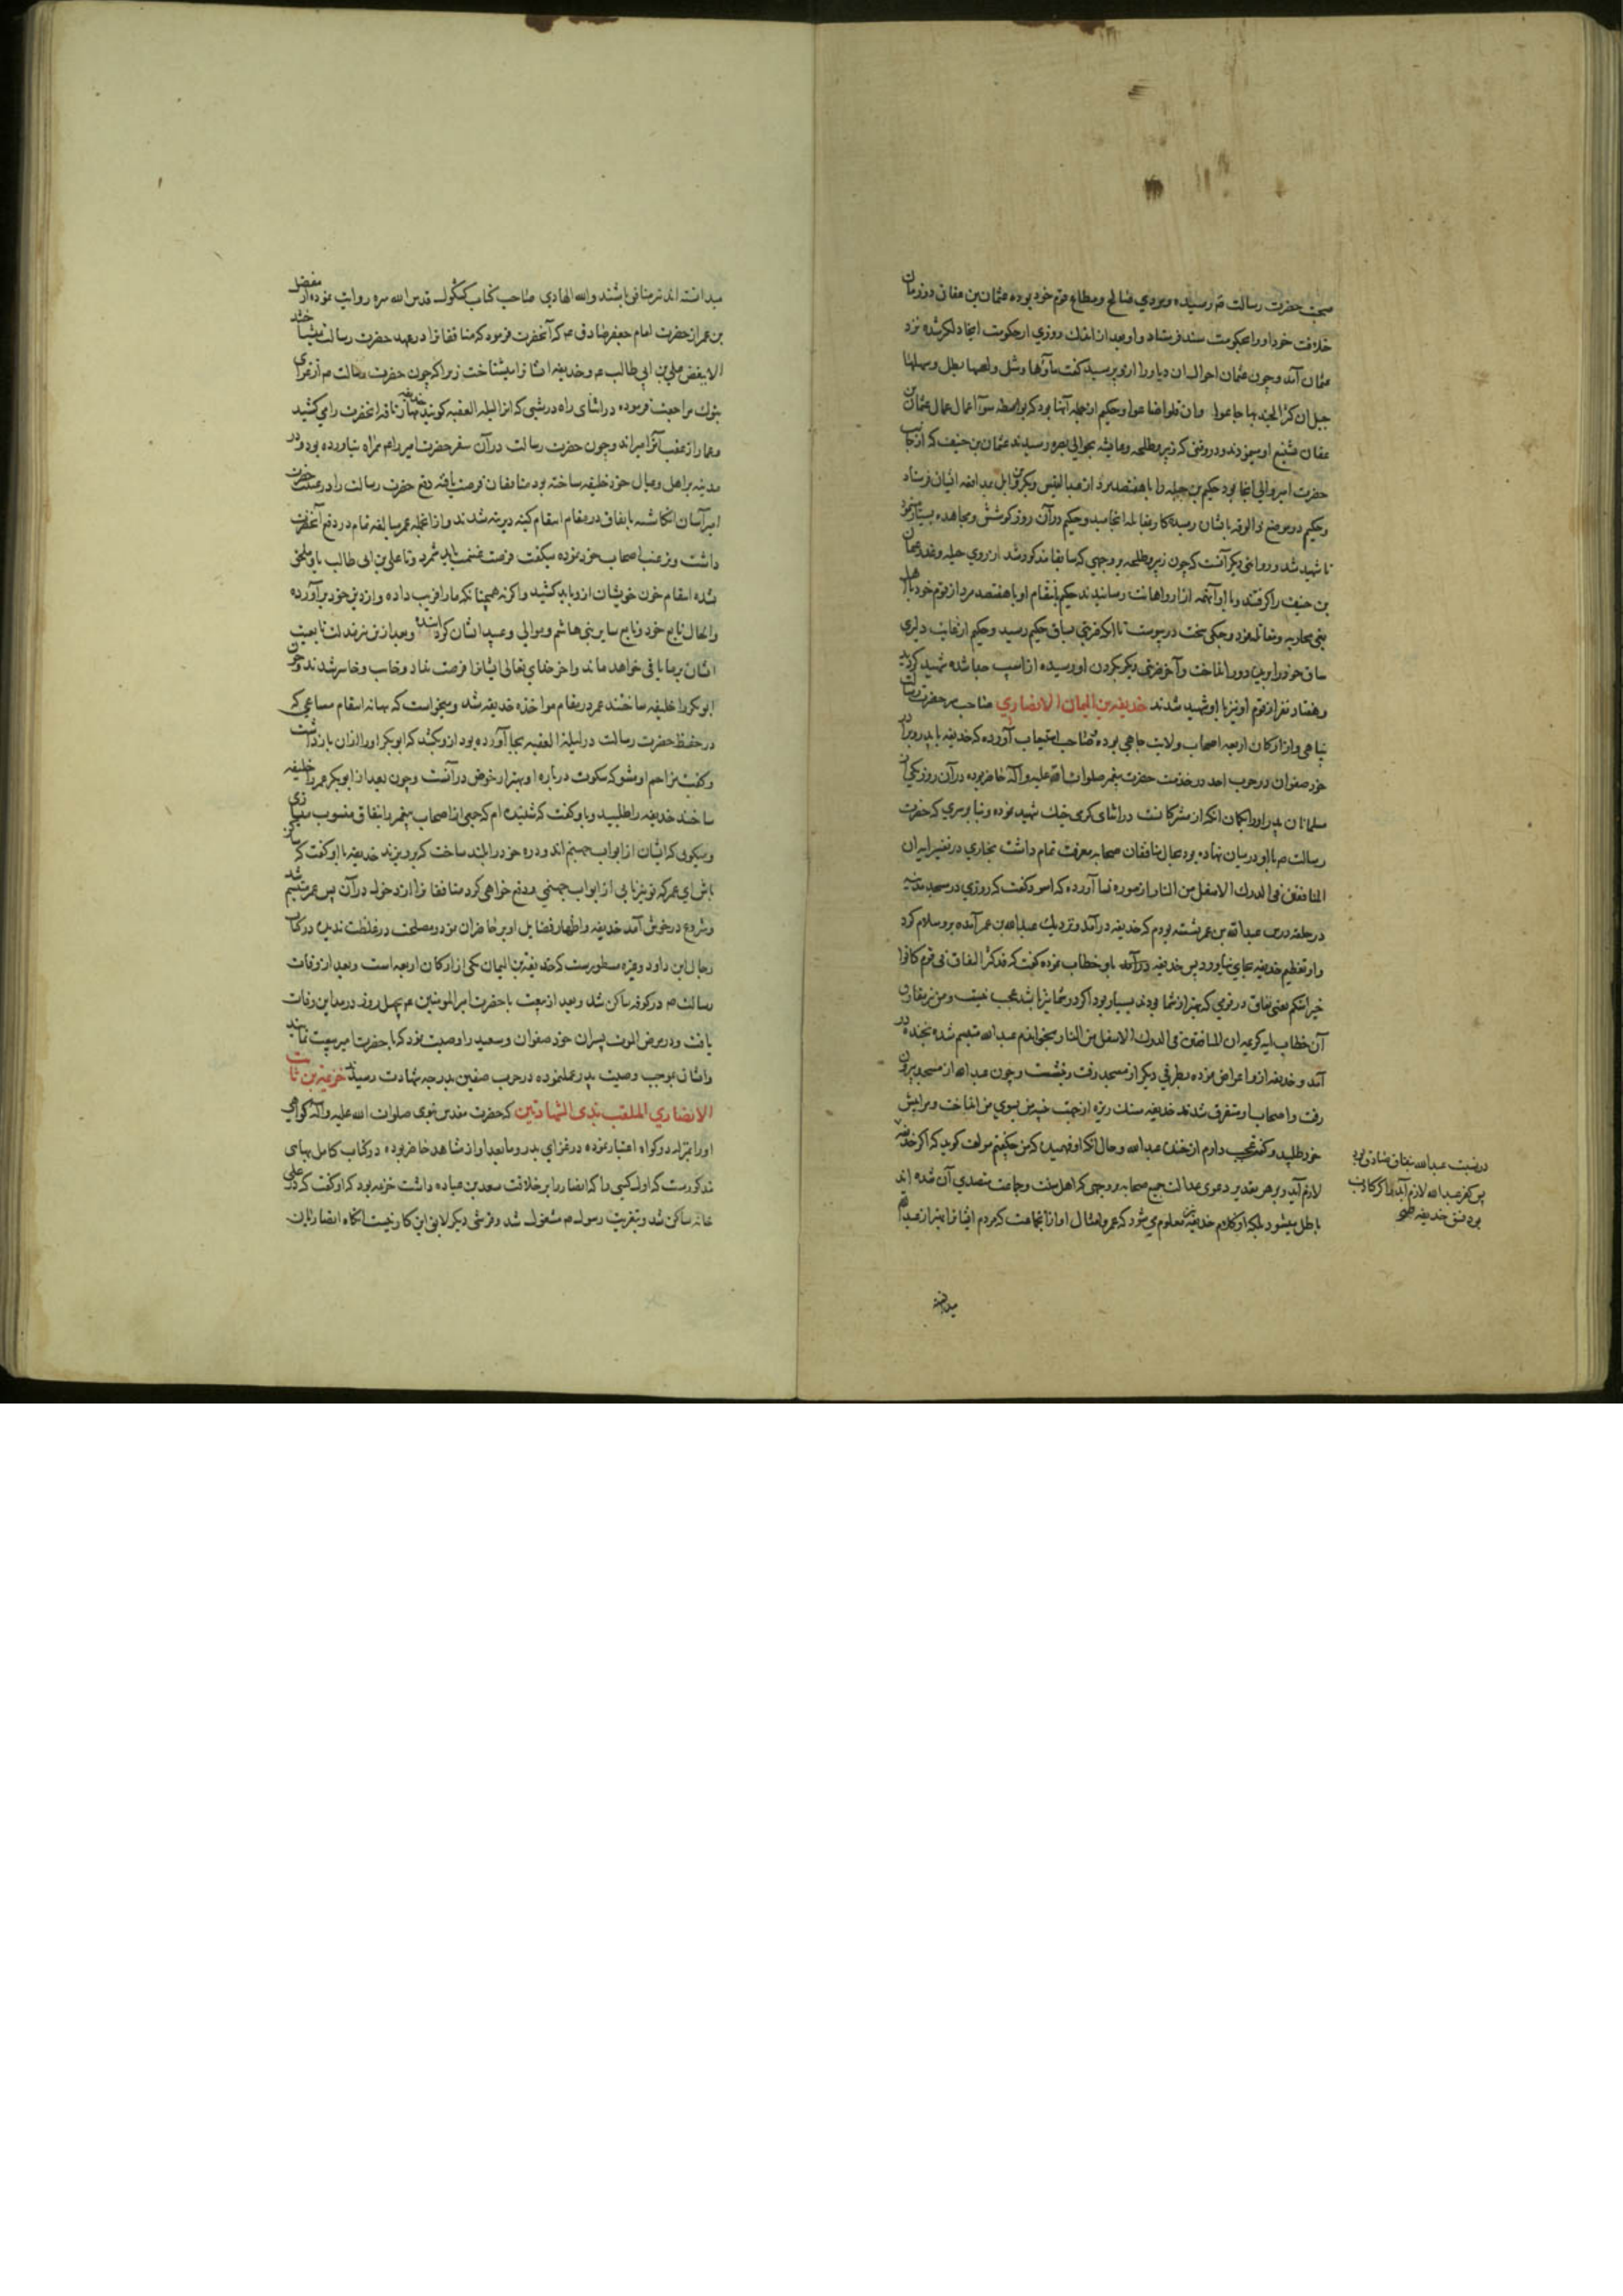 صحبت حضرت رسالت ص رسیده و مردی صالح و مطاع قوم خود بوده عثمان بن عفان در زمان
خلافت خود او را بحکومت سند فرستاد و او بعد از اندک روزی از حکومت آنجا دلگیر شده نزد
عثمان آمد و چون عثمان احوال آن دیار را ازو پرسید گفت ماؤها وشل و لصها بطل و سهلها
جبل ان کثر الجند بها جاعوا وان قلوا ضاعوا و حکیم از جمله آنها بود که بواسطه سوء اعمال عمال عثمان بن
عفان تشنیع او مینمودند و در وقتی که زبیر و طلحه و عایشه بحوالی بصره رسیدند عثمان بن حنیف که از جانب
حضرت امیر والی آنجا بود حکیم بن جبله را با هفتصد مرد از عبدالقیس و بکر بن وایل بمدافعه ایشان فرستاد
و حکیم در موضع بایشان رسیده کار بمقابله انجامید و حکیم در آن روز کوشش و مجاهده بسیار نمود
تا شهید شد و روایتی دیگر آنست که چون زبیر و طلحه بر وجهی که سابقا مذکور شد از روی حیله و غدر عثمان
بن حنیف را گرفتند و با او آنهمه آزار و اهانت رسانیدند حکیم بانتقام او با هفتصد مرد از قوم خود با اهل
بغی محاربه و مقاتله نمود و جنگی سخت در پیوست تا آنکه ضربتی بساق حکیم رسید و حکیم از غایت دلیری
ساق خود را بریده دور انداخت و آخر ضربتی دیگر بگردن او رسیده از اسپ جدا شده شهید گردید
و هفتاد نفر از قوم او نیز با او شهید شدند حذیفه بن الیمان الانصاری صاحب سر حضرت رسالت
پناهی و از ارکان اربعه اصحاب ولایت جاهی بوده صاحب استیعاب آورده که حذیفه با پدر و برادر
خود صفوان در حرب احد در خدمت حضرت پیغمبر صلوات الله علیه و آله حاضر بوده در آن روز یکی از
مسلمانان پدر او را بگمان آنکه از مشرکانست در اثنای گرمی جنگ شهید نموده و بنا بر سری که حضرت
رسالت ص با او در میان نهاده بود بحال منافقان صحابه معرفت تمام داشت بخاری در تفسیر آیه ان
المنافقین فی الدرک الاسفل من النار از سوره نسا آورده که اسود گفت که روزی در مسجد مدینه
در حلقه درس عبدالله بن عمر نشسته بودم که حذیفه در آمد و نزدیک عبدالله بن عمر آمده برو سلام کرد
و او تعظیم حذیفه بجای نیاورد پس حذیفه در آمد باو خطاب نموده گفت که قد کثر النفاق فی قوم کانوا
خیرا منکم یعنی نفاق در قومی که بهتر از شما بودند بسیار بود اگر در شما نیز باشد عجب نیست و من نیز مقارن
آن خطاب آیه کریمه ان المنافقین فی الدرک الاسفل من النار میخواندم عبدالله متبسم شده بخنده در
آمد و حذیفه ازو اعراض نموده بطرفی دیگر از مسجد رفت و نشست و چون عبدالله از مسجد بیرون
رفت و اصحاب او متفرق شدند حذیفه سنگ ریزه از جهت تنبیه من بسوی من انداخت و مرا پیش
خود طلبید و گفت عجب دارم از خنده عبدالله و حال آنکه او فهمید که من چه گفتم مولف گوید که اگر حذیفه
در نسبت عبدالله بنفاق صادق بود
پس کفر عبدالله لازم آید و اگر کاذب
بود فسق حذیفه
لازم آید و بر هر تقدیر دعوی عدالت جمیع صحابه بر وجهی که اهل سنت و جماعت متصدی آن شده اند
باطل میشود بلکه از کلام حذیفه معلوم می شود که عمر و امثال او از آنجماعت که مردم ایشانرا بهتر از عبدالله
میدانسته
میدانسته اند نیز منافق باشند والله الهادی صاحب کتاب کشکول قدس الله سره روایت نموده از مفضل
بن عمر از حضرت امام جعفر صادق ع که آنحضرت فرمود که منافقانرا در عهد حضرت رسالت نمیشناختند
الا ببغض علی بن ابی طالب ع و حذیفه ایشانرا میشناخت زیرا که چون حضرت رسالت ص از غزای
تبوک مراجعت فرموده در اثنای راه در شبی که انرا لیلة العقبه گویند حذیفه مهار ناقه آنحضرت را می کشید
و عمار از عقب آنرا میراند و چون حضرت رسالت در آن سفر حضرت امیر را همراه نیاورده بود و در
مدینه بر اهل و عیال خود خلیفه ساخته بود منافقان فرصت یافته دفع حضرت رسالت را در غیبت حضرت
امیر آسان انگاشته باتفاق در مقام انتقام کینه دیرینه شدند و از آنجمله عمر مبالغه تمام در دفع آنحضرت
داشت و ترغیب اصحاب خود نموده میگفت فرصت غنیمت باید شمرد و تا علی بن ابی طالب باو ملحق
نشده انتقام خون خویشان ازو باید کشید و اگر نه همچنانکه ما را فریب داده و از دین خود برآورده
والحال تابع خود و تابع سایر بنی هاشم و موالی و عبید ایشان گردانیده و بعد ازین نیز ذلت تابعیت
ایشان بر ما باقی خواهد ماند و آخر خدای تعالی ایشانرا فرصت نداد و خایب و خاسر شدند و چون
ابوبکر را خلیفه ساختند عمر در مقام مواخذه حذیفه شد و میخواست که بهانه انتقام مساعی که
در حفظ حضرت رسالت در لیلة العقبه بجا آورده بود ازو بکشد که ابوبکر او را از آن باز داشت
و گفت مزاحم او مشو که سکوت درباره او بهتر از خوض در آنست و چون بعد از ابوبکر عمر را خلیفه
ساختند حذیفه را طلبید و باو گفت که شنیده ام که جمعی از اصحاب پیغمبر را بنفاق منسوب میسازی
و میگوئی که ایشان از ابواب جهنم اند و دره خود را بلند ساخت که برو بزند حذیفه با او گفت که ساکن
باش ای عمر که تو نیز بابی از ابواب جهنمی و منع خواهی کرد منافقانرا از دخول در آن پس عمر متبسم شد
و شروع در خوش آمد حذیفه و اظهار فضایل او بر حاضران نمود و مصلحت در غلظت ندید در کتاب
رجال ابن داود و غیره مسطورست که حذیفة بن الیمان یکی از ارکان اربعه است و بعد از وفات
رسالت ص در کوفه ساکن شد و بعد از بیعت با حضرت امیر المومنین ع بچهل روز در مداین وفات
یافت و در مرض الموت پسران خود صفوان و سعید را وصیت نمود که با حضرت امیر بیعت نمایند
و ایشان بموجب وصیت پدر عمل نموده در حرب صفین بدرجه شهادت رسیدند خزیمه بن ثابت
الانصاری الملقب بذی الشهادتین که حضرت مقدس نبوی صلوات الله علیه و آله گواهی
او را بمنزله دو گواه اعتبار نموده در غزای بدر و ما بعد او از مشاهد حاضر بوده در کتاب کامل بهائی
مذکورست که اول کسی را که انصار را بر خلافت سعد بن عباده داشت خزیمه بود که او گفت که علی در
خانه ساکن شد و بتعزیت رسول ص مشغول شد و قرشی دیگر لایق این کار نیست آنگاه انصار بآن